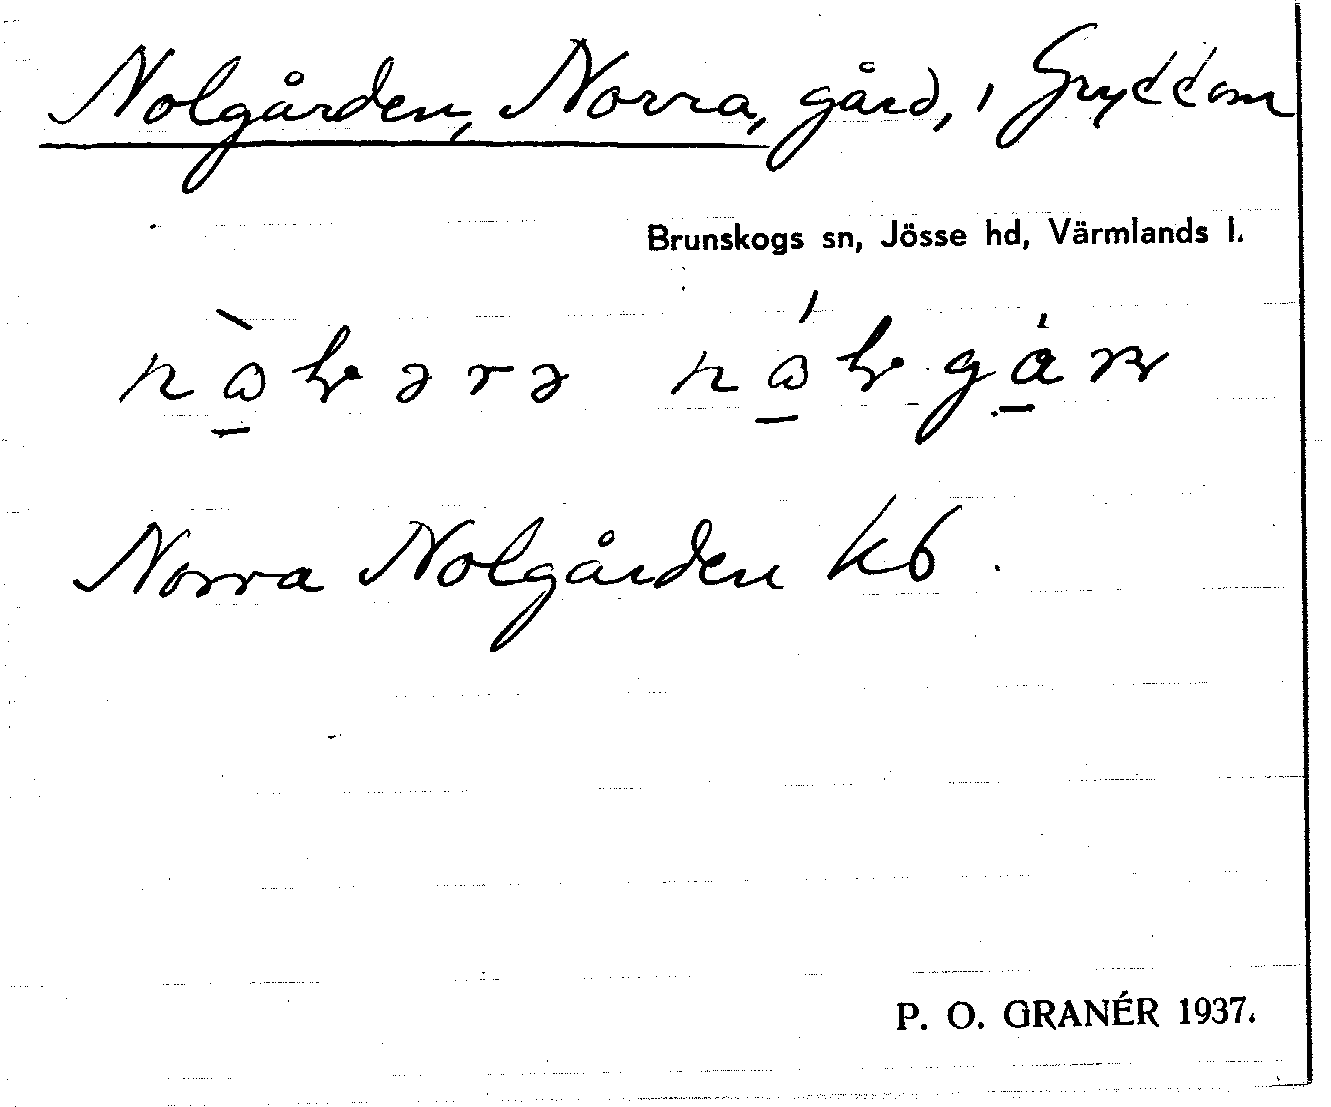 Nolgården, Norra, gård, i Gryttom
Brunskogs sn, Jösse hd, Värmlands l.
Norra Nolgården kb.
P. O. GRANÉR 1937.